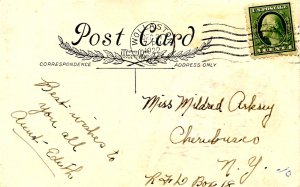 Post Card
CORRESPONDENCE
ADDRESS ONLY
U.S. POSTAGE
1 CENT 1
Best wishes to
you all
Aunt Edith
Miss Mildred Arksey
Cherubusco
N. Y.
R F D Box 18